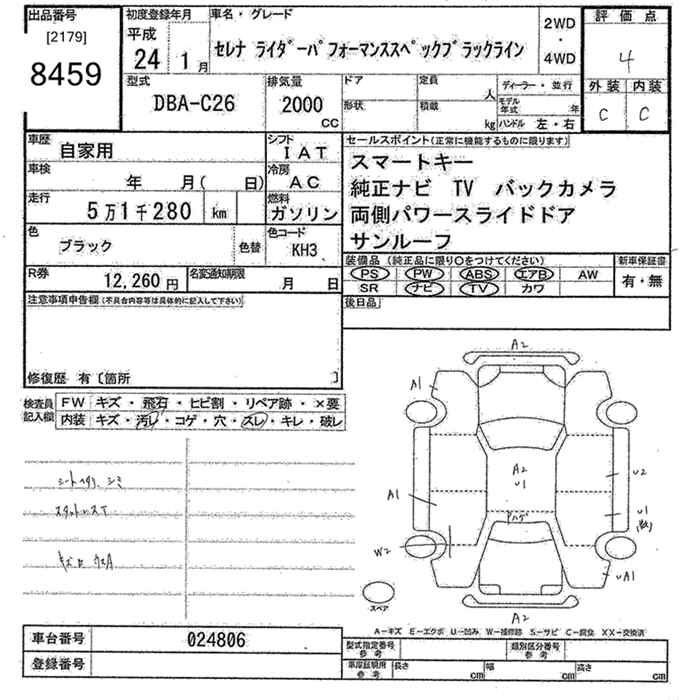 出品番号
[2179]
8459
初度登録年月
平成
24 1月
車名・グレード
セレナ ライダーパフォーマンススペックブラックライン
2WD
・
4WD
評価点
4
外装 内装
C C
型式
DBA-C26
排気量
2000
cc
ドア
形状
定員
人
積載
kg
ディーラー・並行
モデル年式 年
ハンドル 左・右
車歴
自家用
シフト
IAT
車検
年 月( 日)
冷房
AC
走行
5万1千280 km
燃料
ガソリン
色
ブラック
色替
色コード
KH3
R券
12,260円
名変通知期限
月 日
セールスポイント(正常に機能するものに限ります)
スマートキー
純正ナビ TV バックカメラ
両側パワースライドドア
サンルーフ
装備品(純正品に限り○をつけてください)
PS PW ABS エアB AW
SR ナビ TV カワ
新車保証書
有・無
後日品
注意事項申告欄(不具合内容等は具体的に記入して下さい)
修復歴 有〔箇所 〕
検査員
記入欄
FW キズ・飛石・ヒビ割・リペア跡・×要
内装 キズ・汚レ・コゲ・穴・スレ・キレ・破レ
A2
A1
A2
U1
U2
A1
U1
W2
UA1
A2
スペア
A-キズ E-エクボ U-凹み W-補修跡 S-サビ C-腐食 XX-交換済
車台番号
024806
登録番号
型式指定番号
参考
類別区分番号
参考
車庫証明用
参考
長さ cm 幅 cm 高さ cm